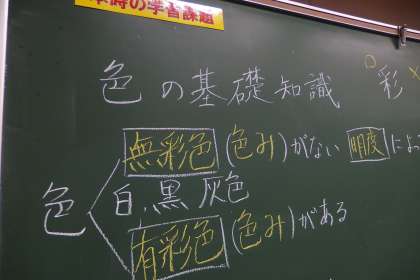 本時の学習課題
色の基礎知識 彩
無彩色(色み)がない 明度によ
色 白.黒 灰色
有彩色(色み)がある